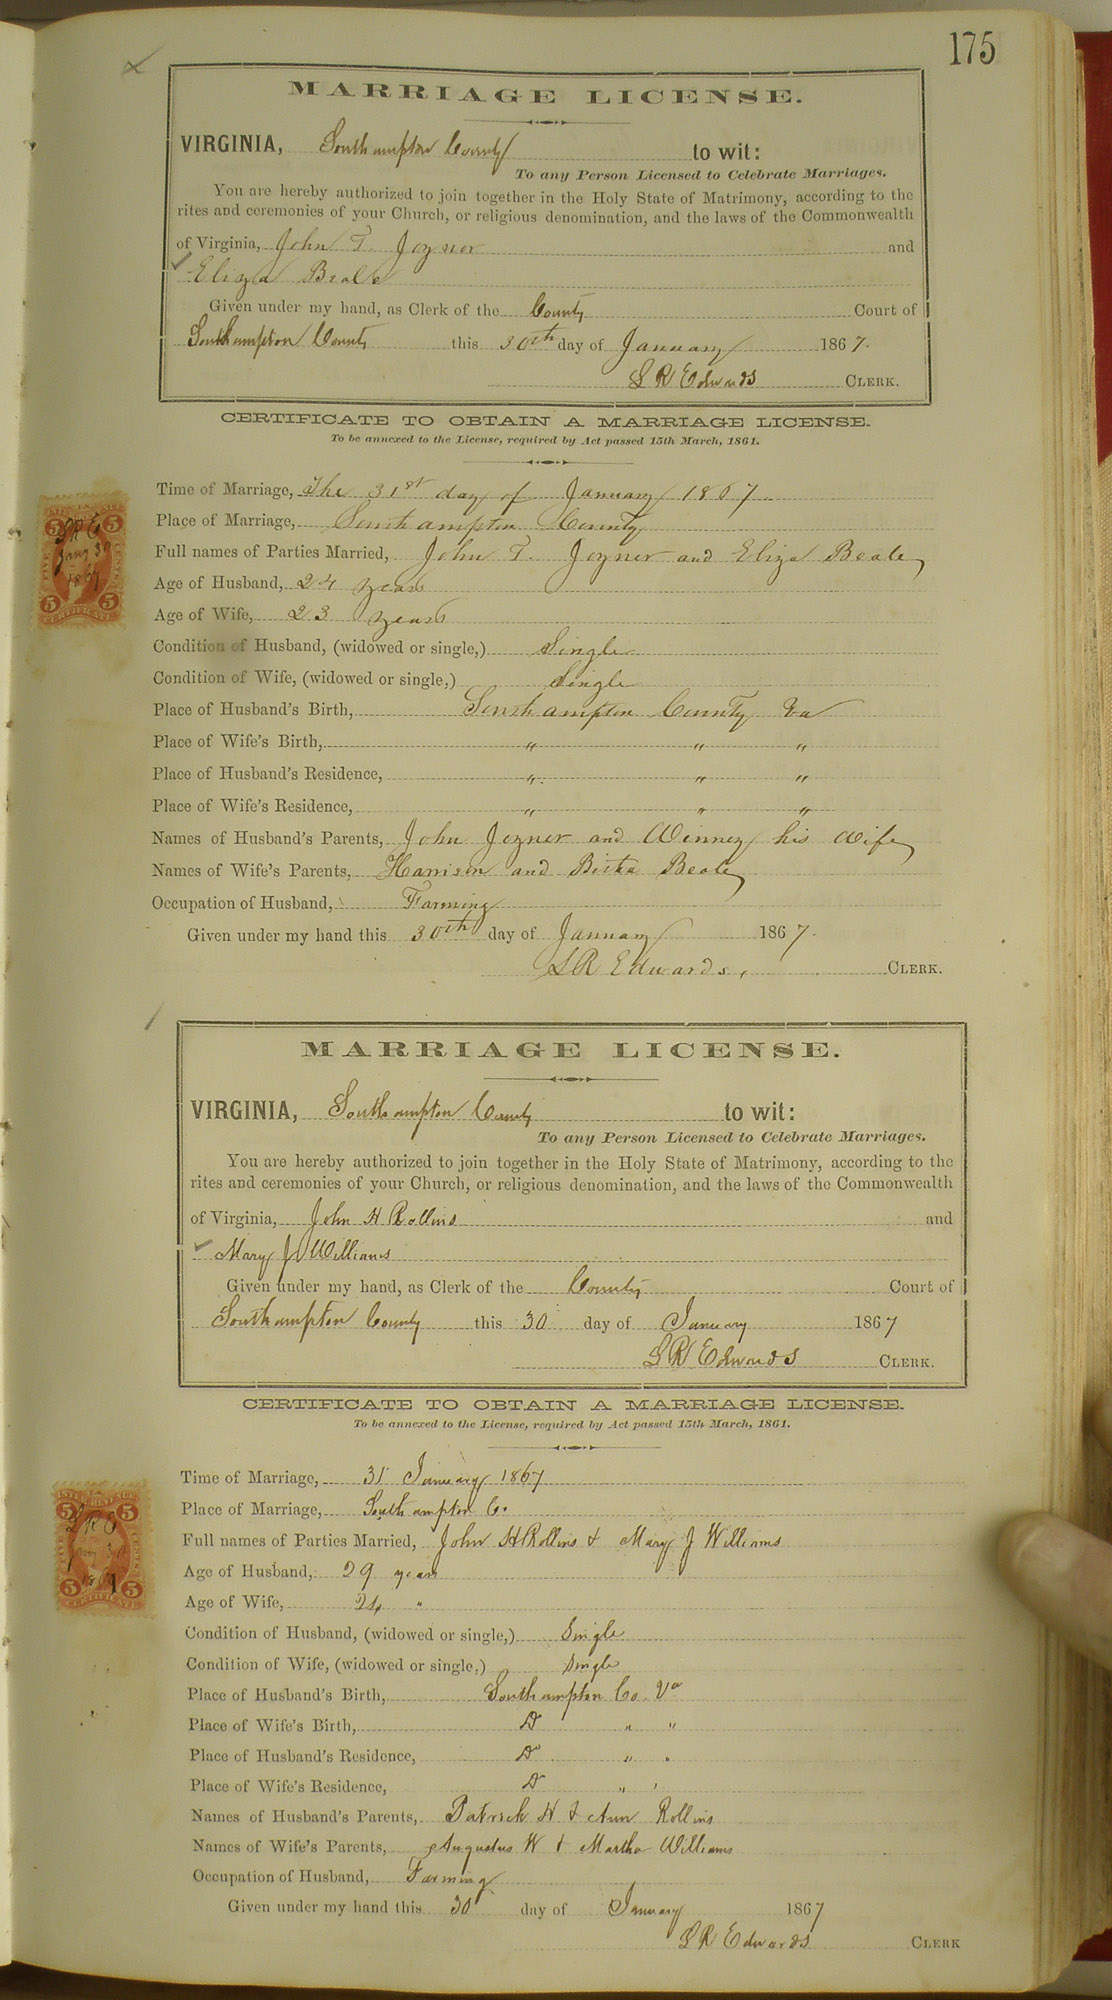 175
MARRIAGE LICENSE.
VIRGINIA, Southampton County to wit:
To any Person Licensed to Celebrate Marriages.
You are hereby authorized to join together in the Holy State of Matrimony, according to the
rites and ceremonies of your Church, or religious denomination, and the laws of the Commonwealth
of Virginia, John T. Joyner and
Eliza Beale
Given under my hand, as Clerk of the County Court of
Southampton County this 30th day of January 1867.
L R Edwards CLERK.
CERTIFICATE TO OBTAIN A MARRIAGE LICENSE.
To be annexed to the License, required by Act passed 15th March, 1861.
Time of Marriage, The 31st day of January 1867
Place of Marriage, Southampton County
Full names of Parties Married, John T. Joyner and Eliza Beale
Age of Husband, 24 years
Age of Wife, 23 years
Condition of Husband, (widowed or single,) Single
Condition of Wife, (widowed or single,) Single
Place of Husband's Birth, Southampton County Va
Place of Wife's Birth, " " "
Place of Husband's Residence, " " "
Place of Wife's Residence, " " "
Names of Husband's Parents, John Joyner and Winney his wife
Names of Wife's Parents, Harrison and Beale
Occupation of Husband, Farming
Given under my hand this 30th day of January 1867.
L R Edwards, CLERK.
5 5
L R E
Jany 30
1867
FIVE CENTS
5 5
CERTIFICATE
MARRIAGE LICENSE.
VIRGINIA, Southampton County to wit:
To any Person Licensed to Celebrate Marriages.
You are hereby authorized to join together in the Holy State of Matrimony, according to the
rites and ceremonies of your Church, or religious denomination, and the laws of the Commonwealth
of Virginia, John H Rollins and
Mary J Williams
Given under my hand, as Clerk of the County Court of
Southampton County this 30 day of January 1867
L R Edwards CLERK.
CERTIFICATE TO OBTAIN A MARRIAGE LICENSE.
To be annexed to the License, required by Act passed 15th March, 1861.
Time of Marriage, 31 January 1867
Place of Marriage, Southampton C.
Full names of Parties Married, John H Rollins & Mary J Williams
Age of Husband, 29 years
Age of Wife, 24 "
Condition of Husband, (widowed or single,) Single
Condition of Wife, (widowed or single,) Single
Place of Husband's Birth, Southampton Co Va
Place of Wife's Birth, Do " "
Place of Husband's Residence, Do " "
Place of Wife's Residence, Do " "
Names of Husband's Parents, Patrick H & Ann Rollins
Names of Wife's Parents, Augustus W & Martha Williams
Occupation of Husband, Farming
Given under my hand this 30 day of January 1867
L R Edwards CLERK
INTER REVENUE
5 5
L R E
Jany 30
1867
FIVE CENTS
5 5
CERTIFICATE